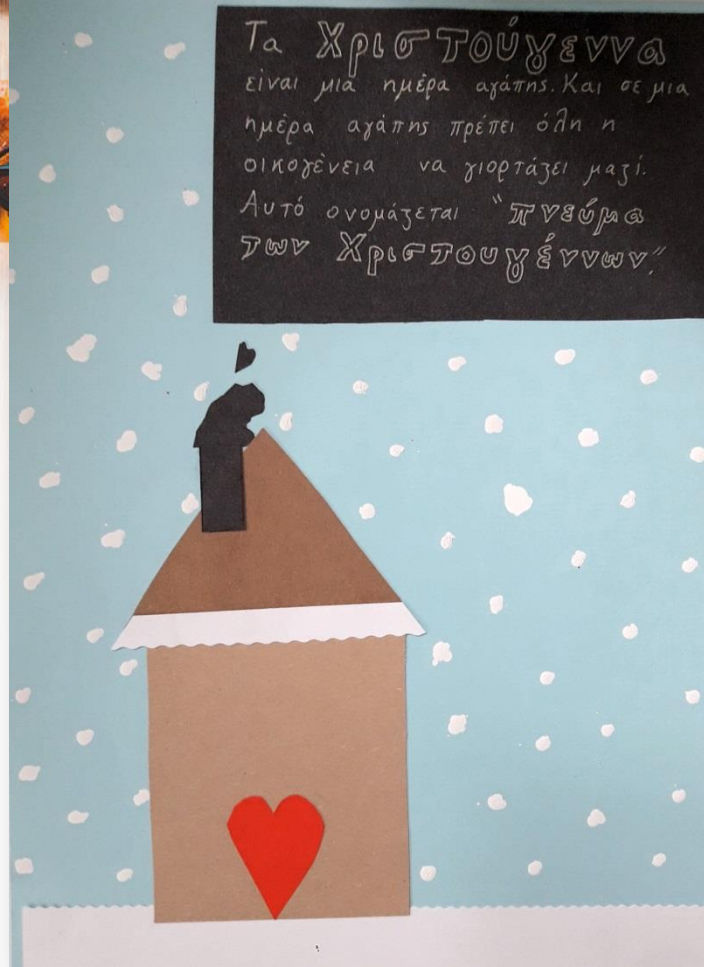 Τα Χριστούγεννα
είναι μια ημέρα αγάπης. Και σε μια
ημέρα αγάπης πρέπει όλη η
οικογένεια να γιορτάζει μαζί.
Αυτό ονομάζεται "πνεύμα
των Χριστουγέννων".